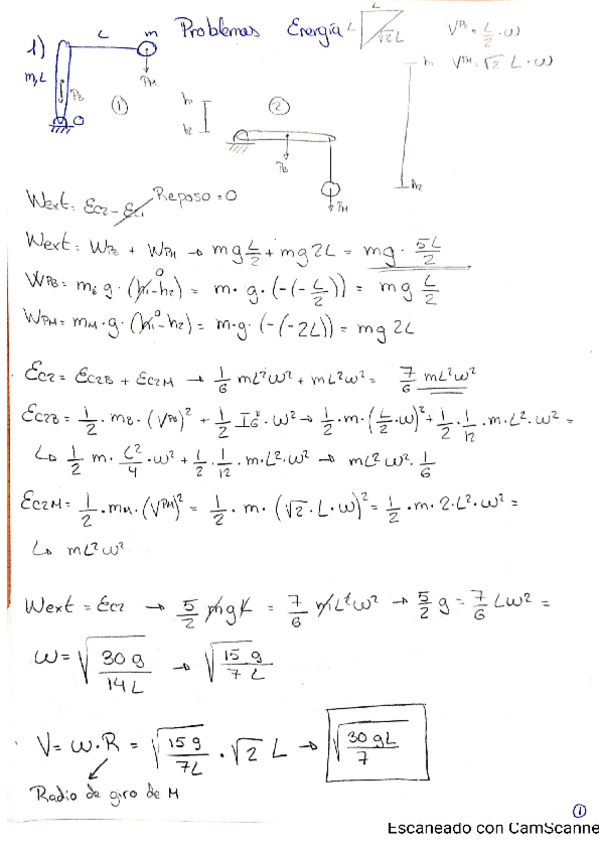 Problemas Energía
L
L
√2L
V^PB = L/2 · ω
V^PM = √2 L · ω
1)
L
m
m, L
P_B
P_M
O
①
②
h1
h2
P_B
P_M
h1
h2
Wext = Ec2 - Ec1 Reposo = 0
Wext = W_PB + W_PM → mg L/2 + mg 2L = mg · 5L/2
W_PB = m_B g · (h1 - h2) = m · g · (-(-L/2)) = mg L/2
W_PM = m_M · g · (h1 - h2) = m · g · (-(-2L)) = mg 2L
Ec2 = Ec2B + Ec2M → 1/6 mL²ω² + mL²ω² = 7/6 mL²ω²
Ec2B = 1/2 · m_B · (V^PB)² + 1/2 I_G^B · ω² → 1/2 · m · (L/2 · ω)² + 1/2 · 1/12 · m · L² · ω² =
↳ 1/2 m · L²/4 · ω² + 1/2 · 1/12 · m · L² · ω² → mL² ω² · 1/6
Ec2M = 1/2 · m_M · (V^PM)² = 1/2 · m · (√2 · L · ω)² = 1/2 · m · 2 · L² · ω² =
↳ mL²ω²
Wext = Ec2 → 5/2 mgL = 7/6 mL²ω² → 5/2 g = 7/6 Lω² =
ω = √(30 g / 14 L) → √(15 g / 7 L)
V = ω · R = √(15 g / 7L) · √2 L → √(30 gL / 7)
Radio de giro de M
①
Escaneado con CamScanne